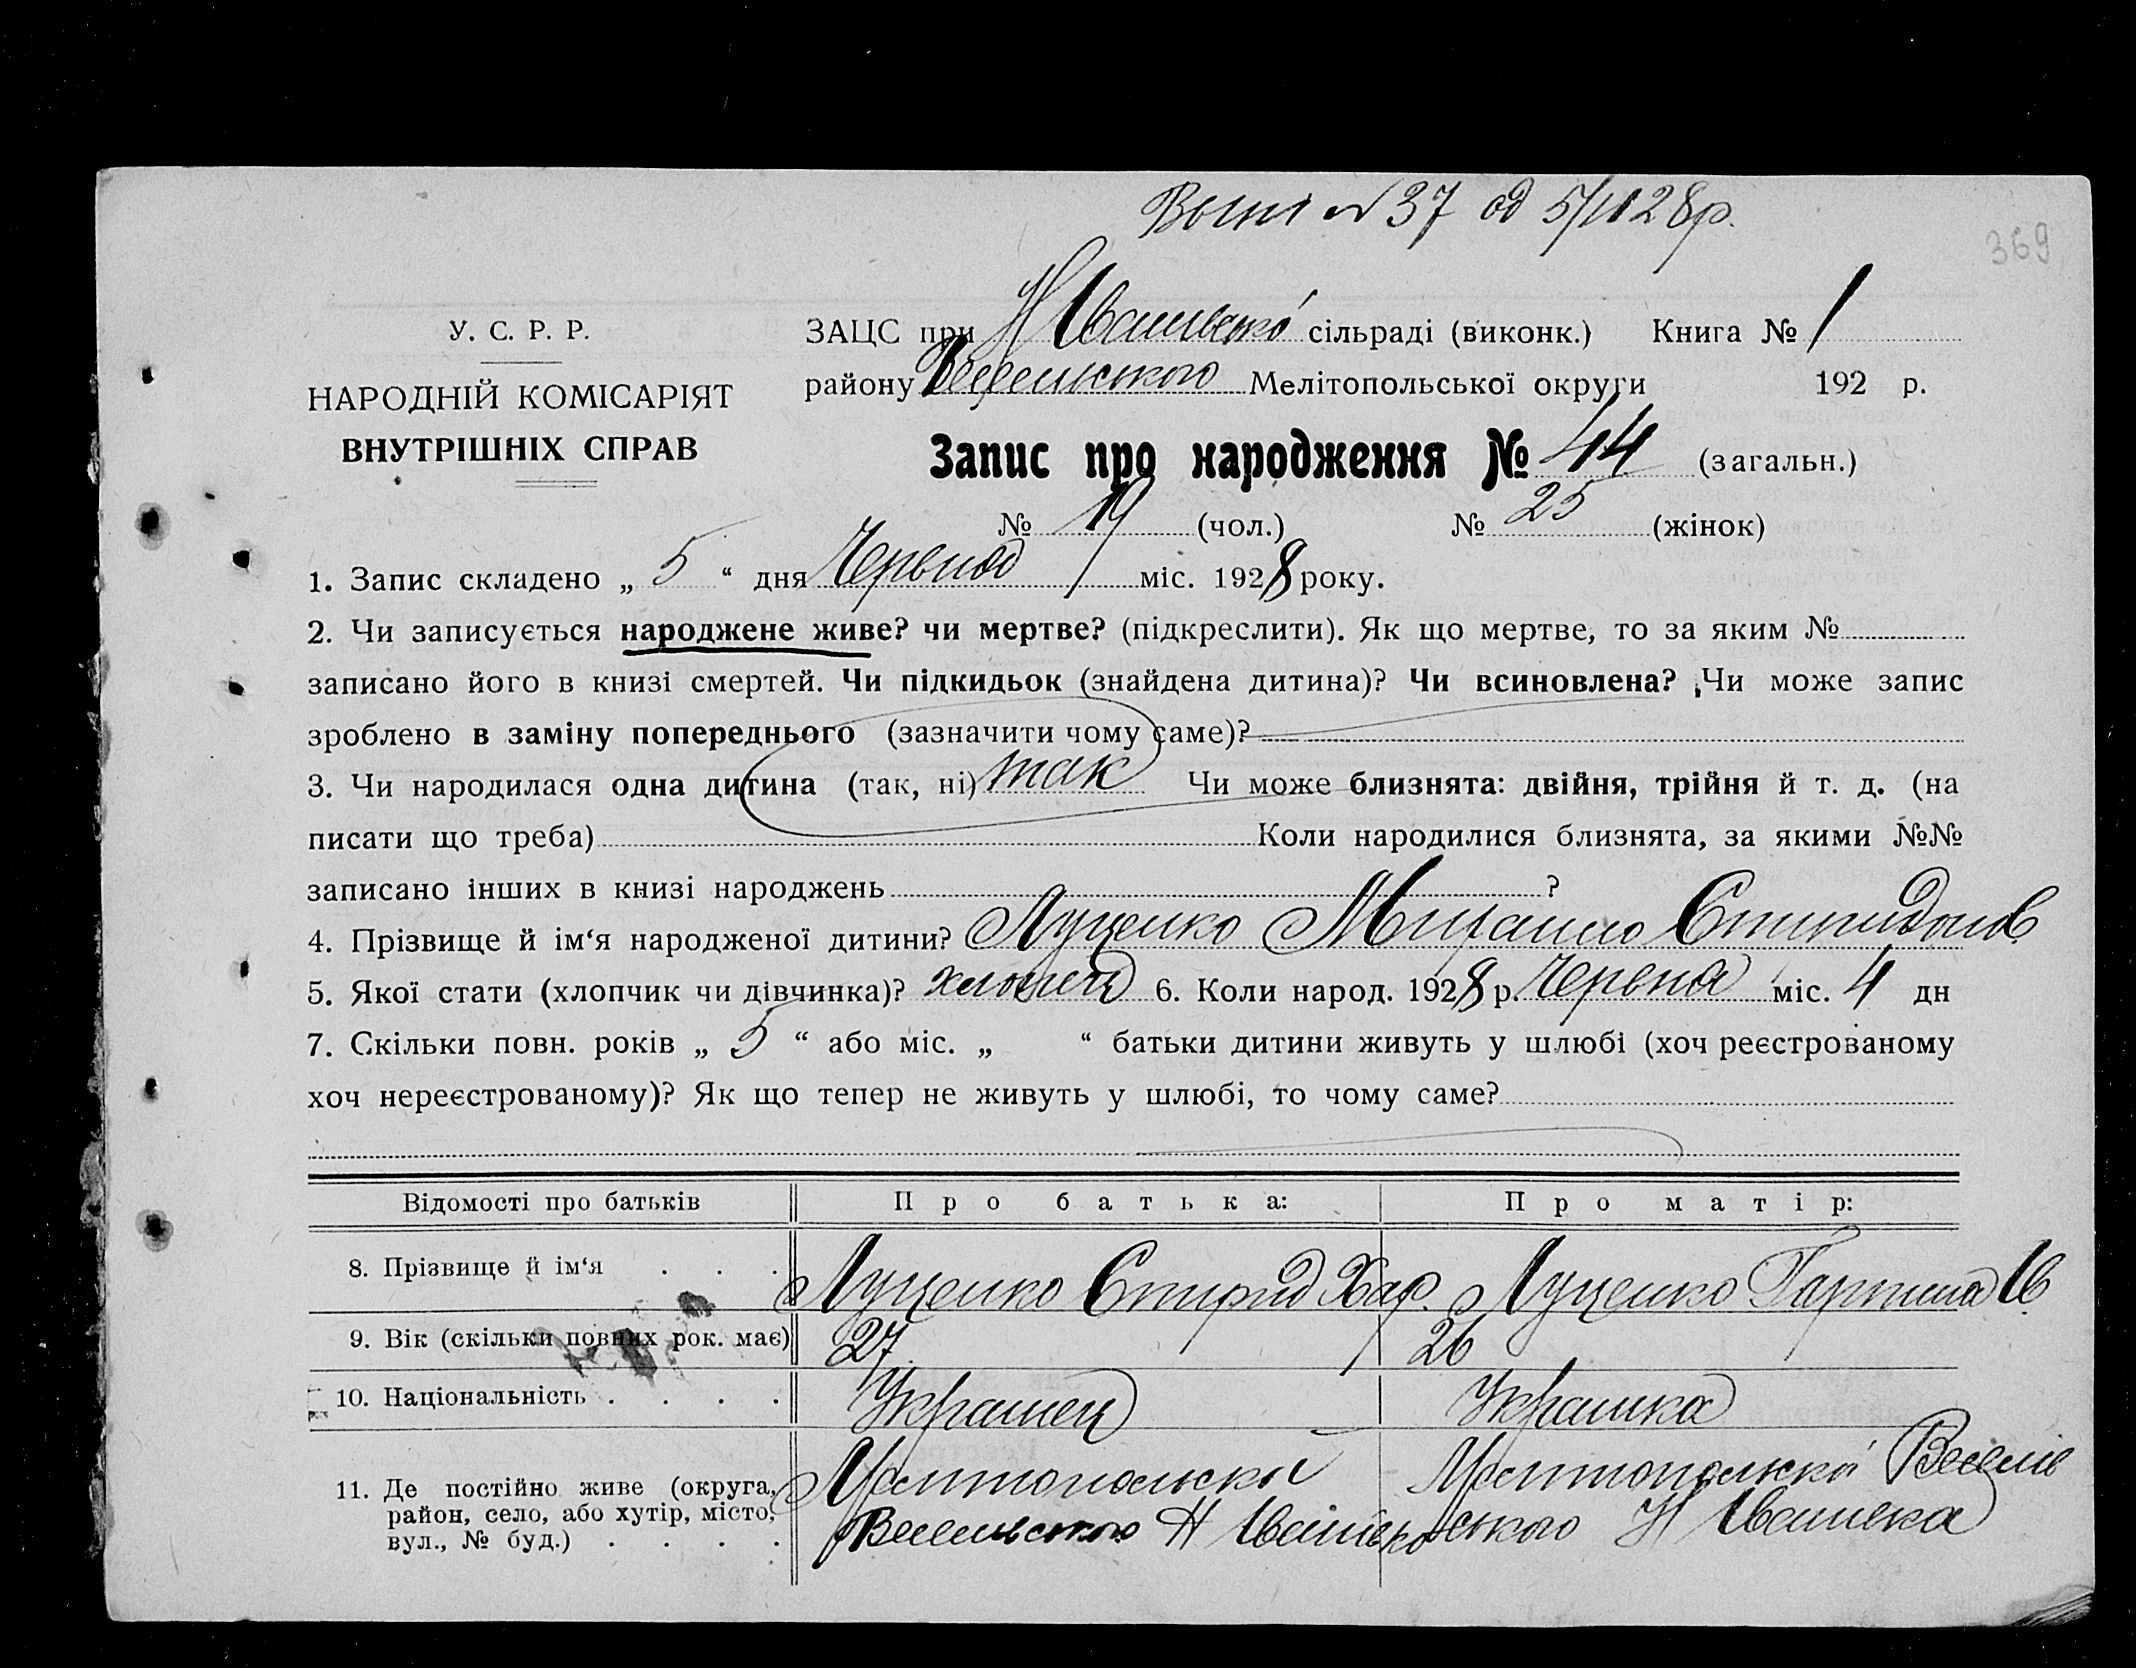 № 37 од 5/VI 28р.
369
У. С. Р. Р.
НАРОДНІЙ КОМІСАРІЯТ
ВНУТРІШНІХ СПРАВ
ЗАЦС при Н Іванівській сільраді (виконк.) Книга № 1
району Веселівського Мелітопольської округи 192 р.
Запис про народження № 44 (загальн.)
№ 19 (чол.) № 25 (жінок)
1. Запис складено „ 5 “ дня Червня міс. 1928 року.
2. Чи записується народжене живе? чи мертве? (підкреслити). Як що мертве, то за яким №
записано його в книзі смертей. Чи підкидьок (знайдена дитина)? Чи всиновлена? Чи може запис
зроблено в заміну попереднього (зазначити чому саме)?
3. Чи народилася одна дитина (так, ні) так Чи може близнята: двійня, трійня й т. д. (на
писати що треба) Коли народилися близнята, за якими №№
записано інших в книзі народжень ?
4. Прізвище й ім‘я народженої дитини? Луценко Михайло Спиридонов
5. Якої стати (хлопчик чи дівчинка)? хлопець 6. Коли народ. 1928 р. Червня міс. 4 дн
7. Скільки повн. років „ 5 “ або міс. „ “ батьки дитини живуть у шлюбі (хоч реєстрованому
хоч нереєстрованому)? Як що тепер не живуть у шлюбі, то чому саме?
Відомості про батьків Про батька: Про матір:
8. Прізвище й ім‘я . . . Луценко Спирид Хар. Луценко Гарпина Ів
9. Вік (скільки повних рок. має) 27 26
10. Національність . . . . Українец Українка
11. Де постійно живе (округа, район, село, або хутір, місто, вул., № буд.) . . . . Мелітопольскої Веселівського Н Іванівка Мелітопольскої Веселівського Н Іванівка